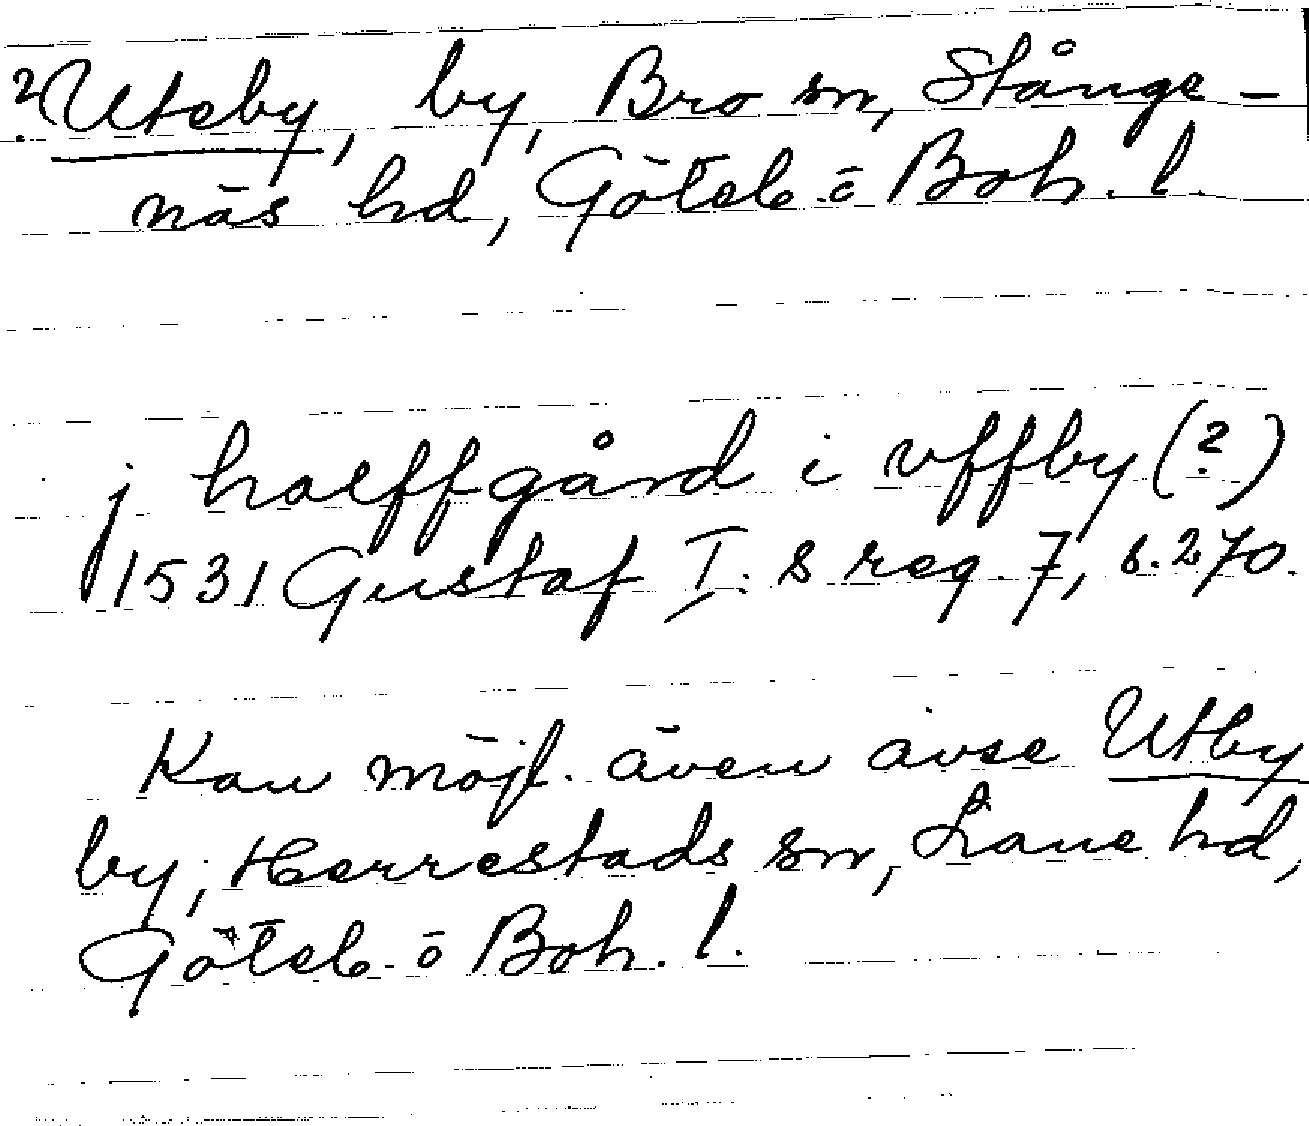 ? Uteby, by, Bro sn, Stånge-
näs hd, Göteb. ö Boh. l.
j halffgård i vffby (?)
1531 Gustaf I. s reg. 7, s. 270.
Kan möjl. även avse Utby
by, Herrestads sn, Lane hd,
Göteb. ö Boh. l.